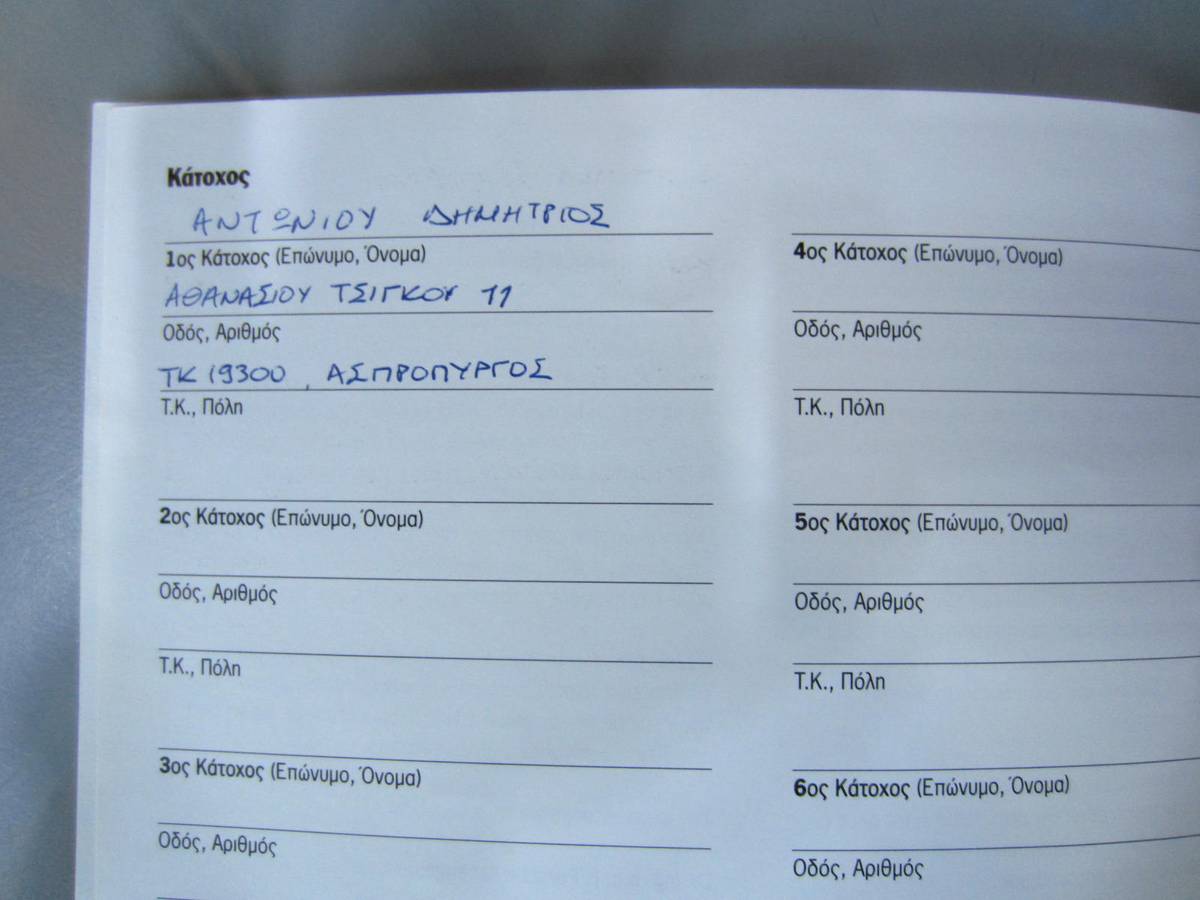 Κάτοχος
ΑΝΤΩΝΙΟΥ ΔΗΜΗΤΡΙΟΣ
1ος Κάτοχος (Επώνυμο, Όνομα)
ΑΘΑΝΑΣΙΟΥ ΤΣΙΓΚΟΥ 11
Οδός, Αριθμός
ΤΚ 19300, ΑΣΠΡΟΠΥΡΓΟΣ
Τ.Κ., Πόλη
2ος Κάτοχος (Επώνυμο, Όνομα)
Οδός, Αριθμός
Τ.Κ., Πόλη
3ος Κάτοχος (Επώνυμο, Όνομα)
Οδός, Αριθμός
4ος Κάτοχος (Επώνυμο, Όνομα)
Οδός, Αριθμός
Τ.Κ., Πόλη
5ος Κάτοχος (Επώνυμο, Όνομα)
Οδός, Αριθμός
Τ.Κ., Πόλη
6ος Κάτοχος (Επώνυμο, Όνομα)
Οδός, Αριθμός